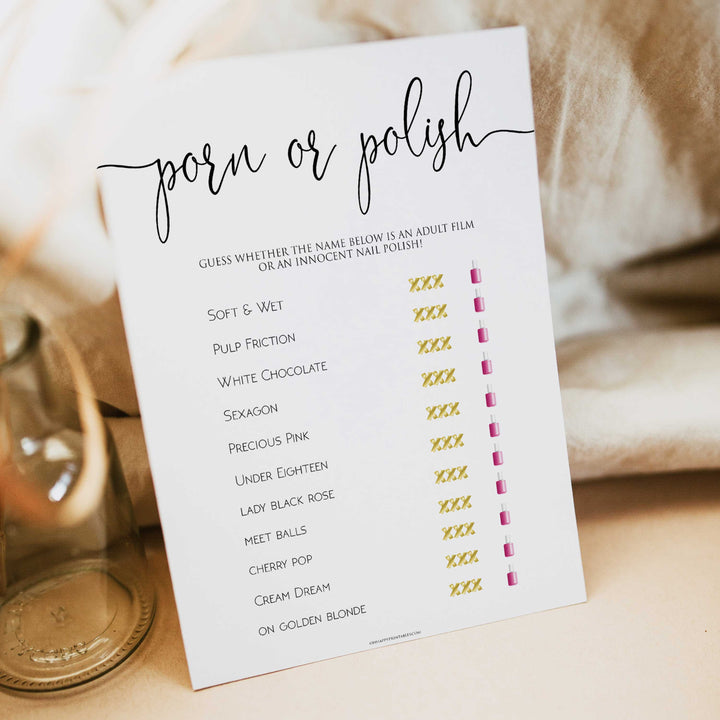 porn or polish
GUESS WHETHER THE NAME BELOW IS AN ADULT FILM
OR AN INNOCENT NAIL POLISH!
SOFT & WET XXX
PULP FRICTION XXX
WHITE CHOCOLATE XXX
SEXAGON XXX
PRECIOUS PINK XXX
UNDER EIGHTEEN XXX
LADY BLACK ROSE XXX
MEET BALLS XXX
CHERRY POP XXX
CREAM DREAM XXX
ON GOLDEN BLONDE XXX